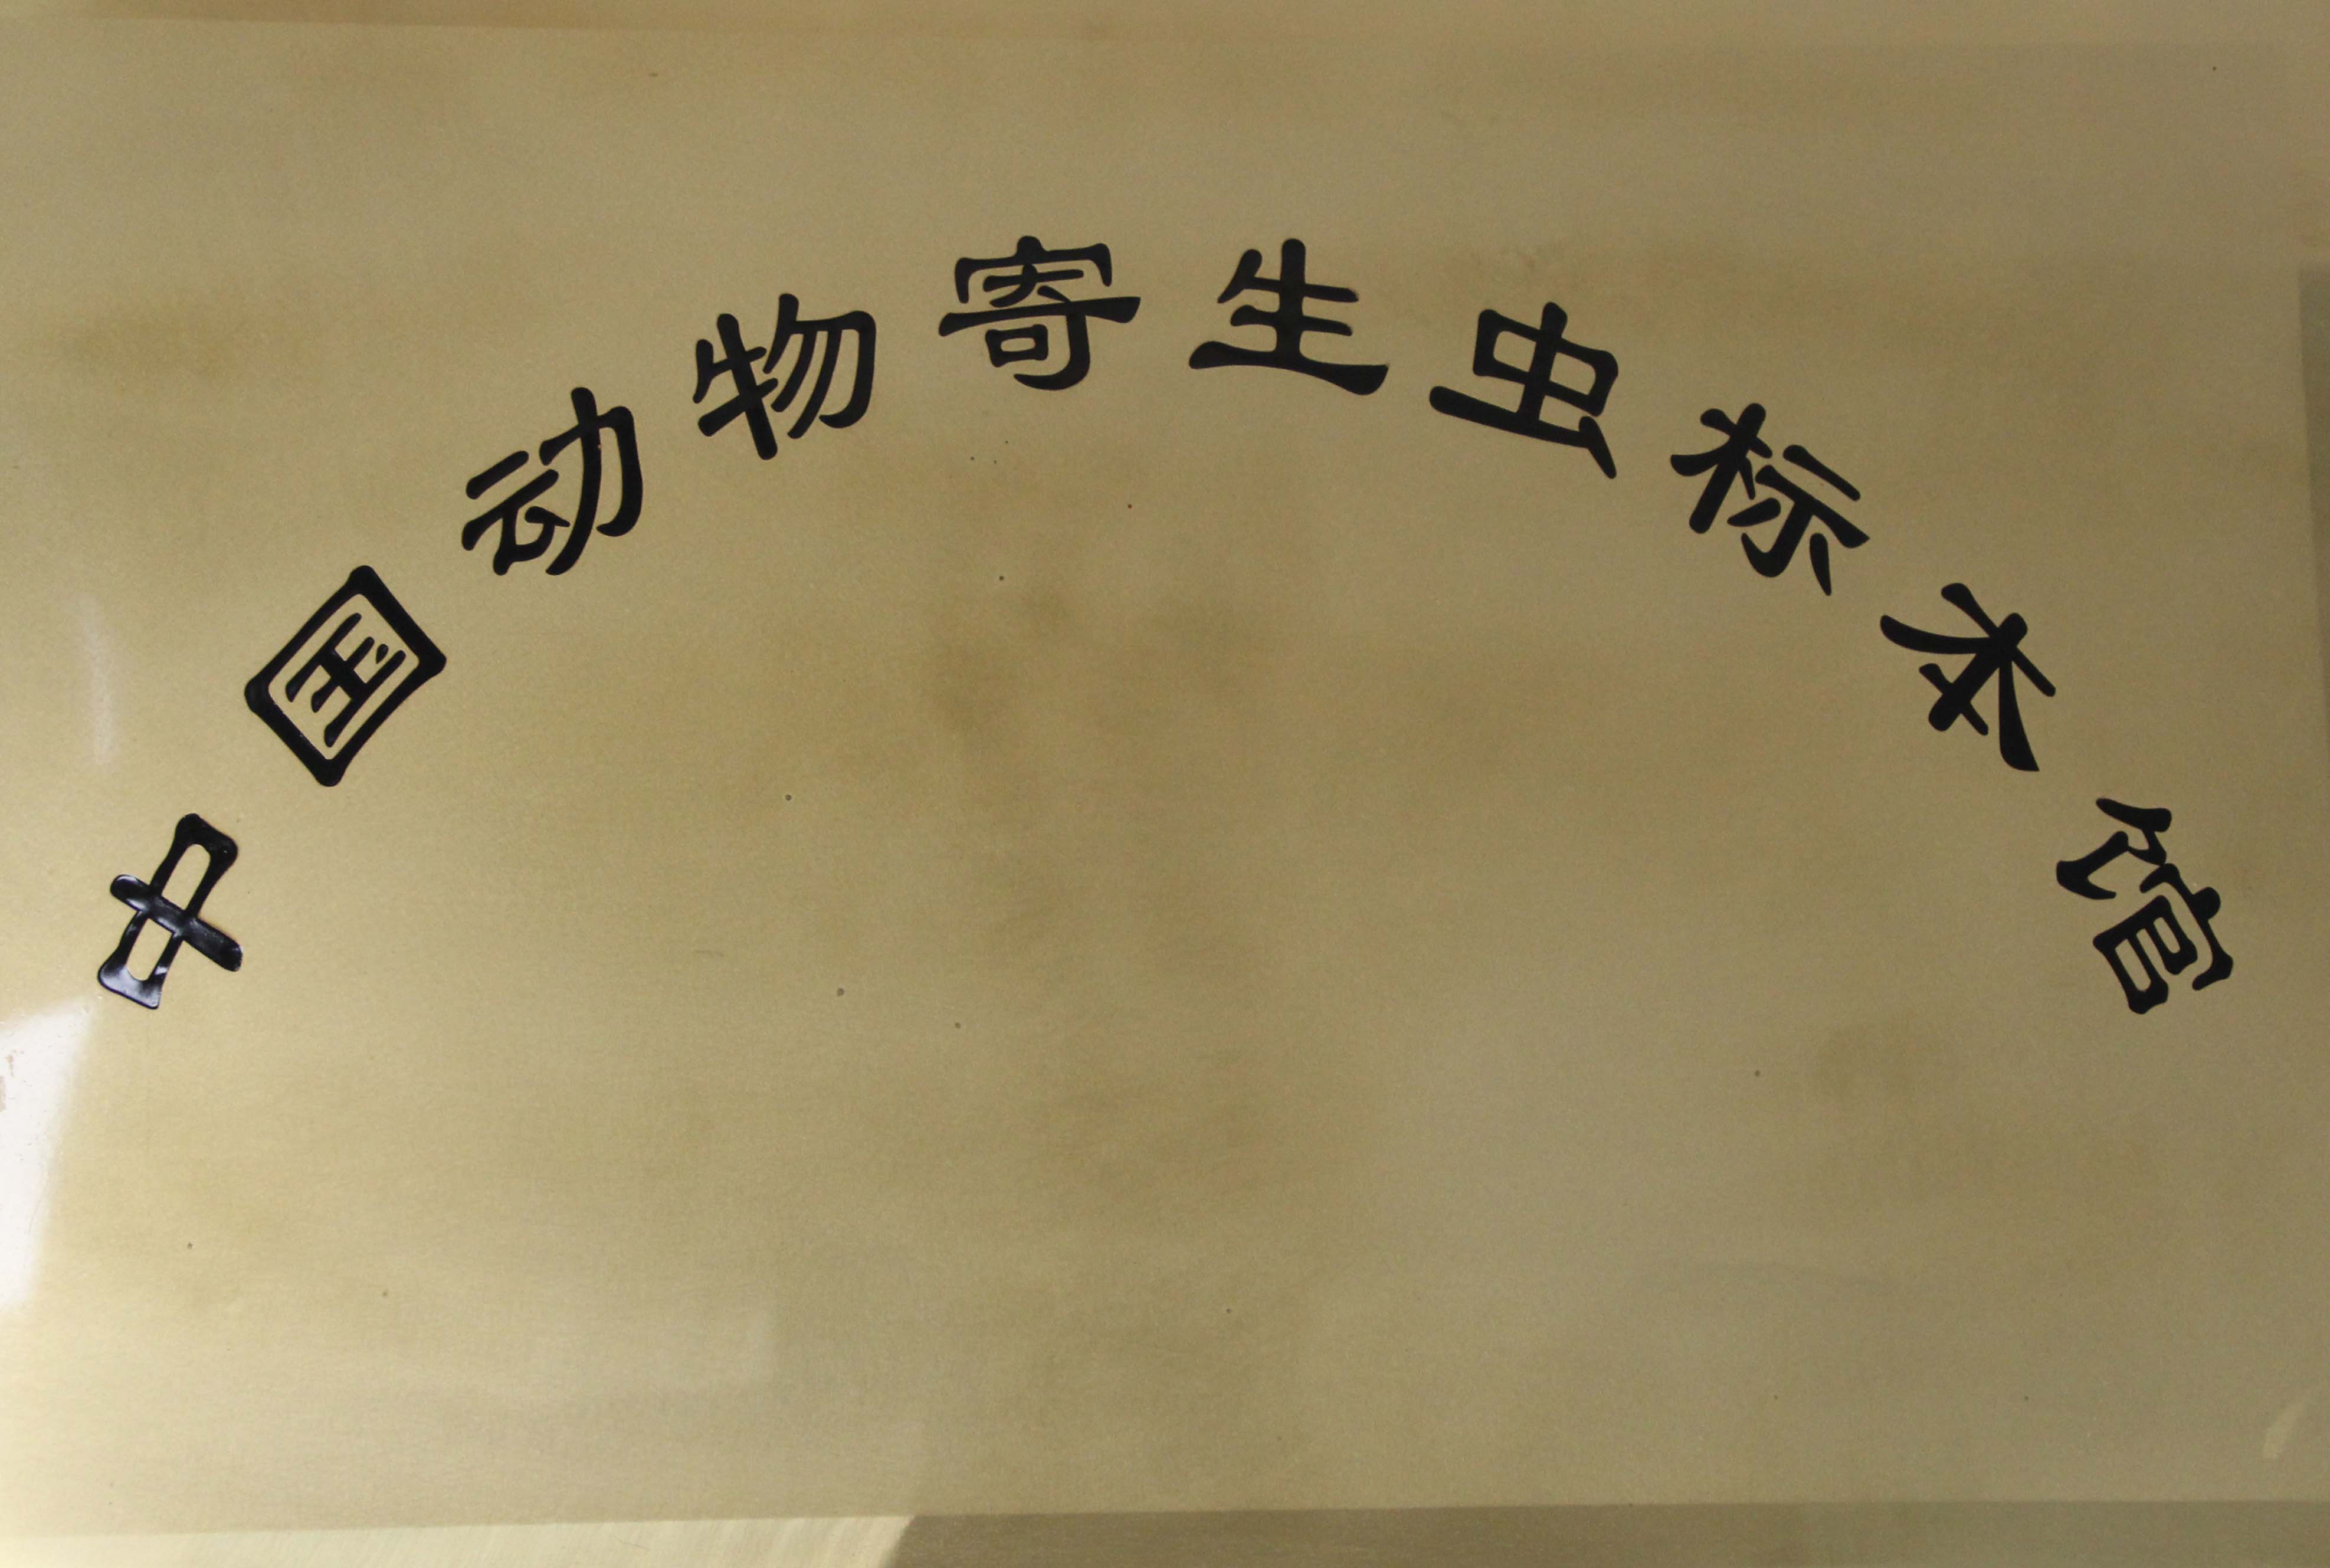 中国动物寄生虫标本馆